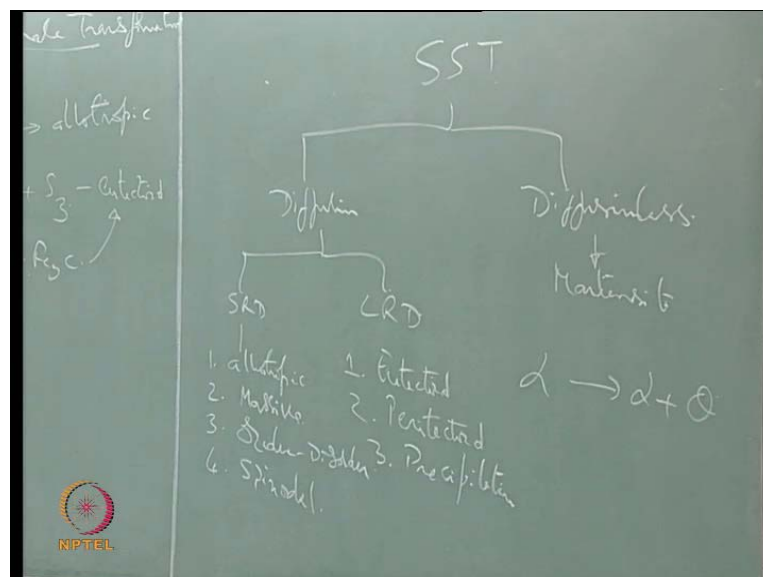 Transformation
→ allotropic
+ S3 - eutectoid
Fe3C
SST
Diffusion
Diffusionless
Martensite
SRD
LRD
1. allotropic
2. Massive
3. Order-Disorder
4. Spinodal.
1. Eutectoid
2. Peritectoid
3. Precipitation
α → α + θ
NPTEL